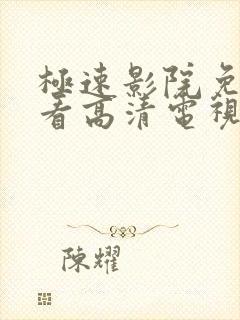 極速影院免
看高清電視
陳耀